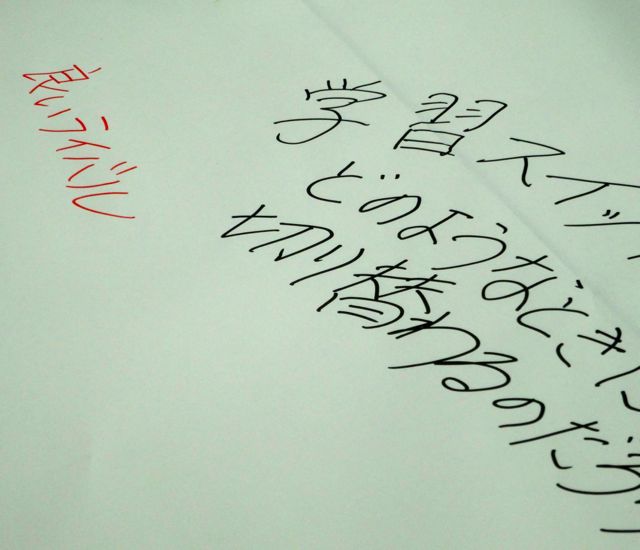 良いライバル
学習スイッ
どのようなとき
切り替わるのだろ